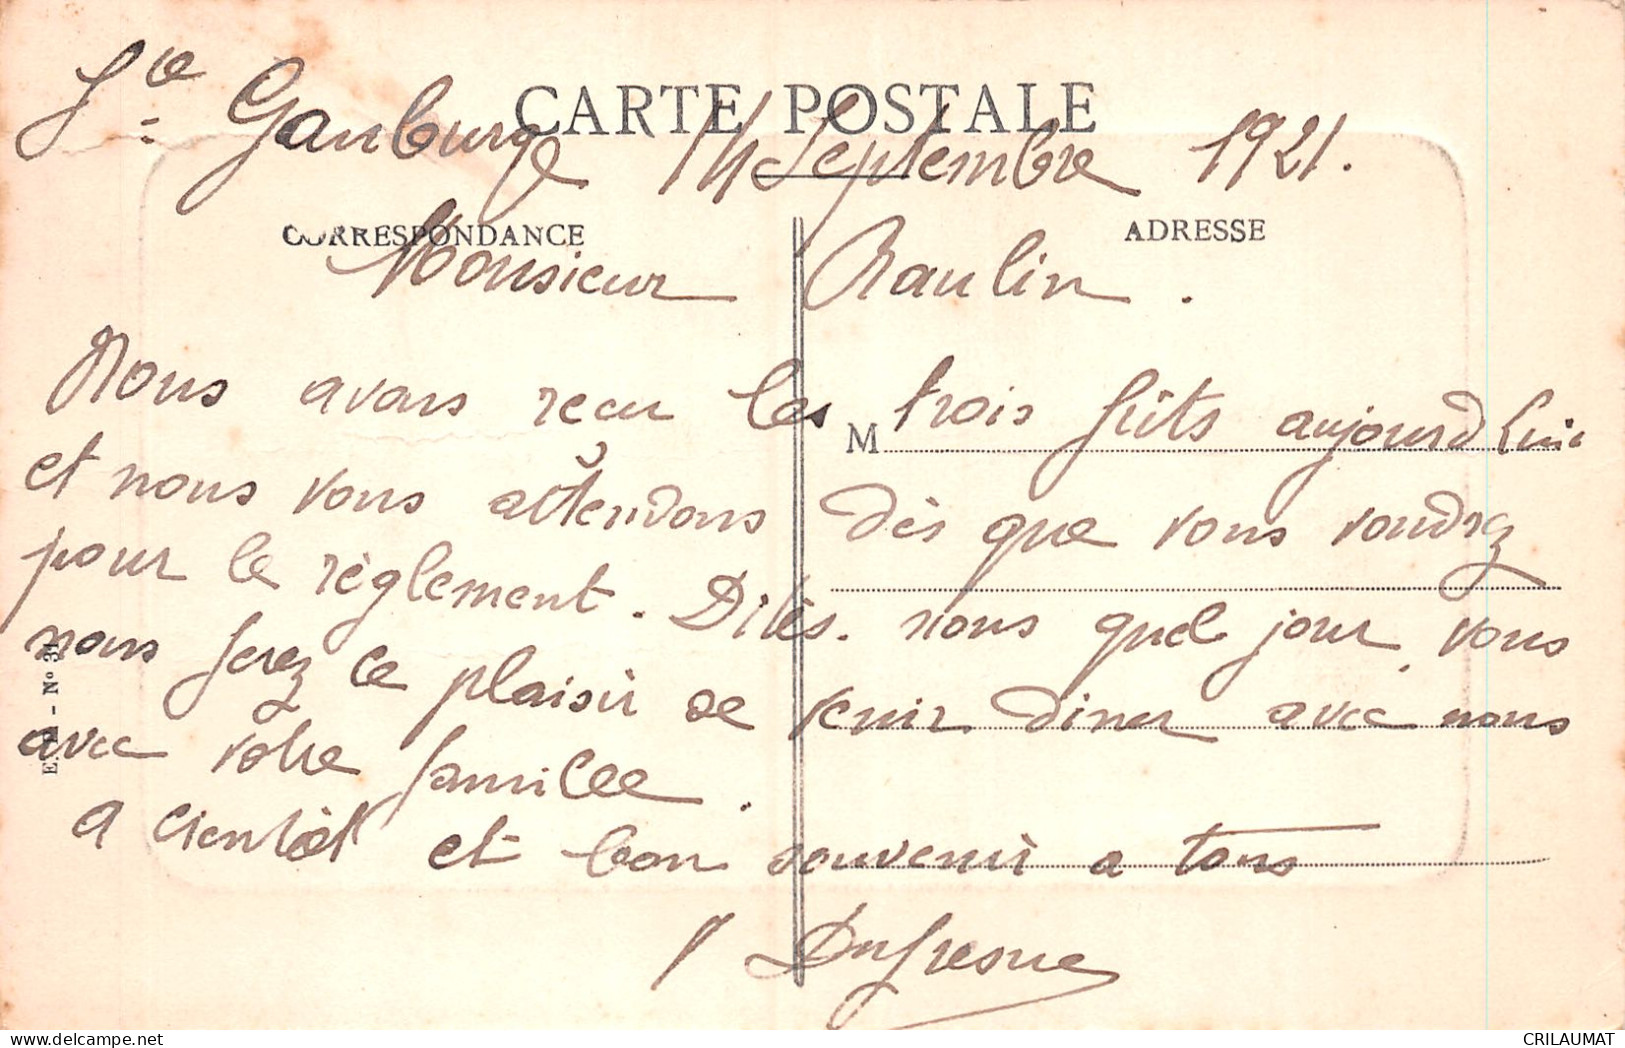 CARTE POSTALE
Ste Gauburge 14 Septembre 1921.
CORRESPONDANCE
ADRESSE
Monsieur Raulin.
Nous avons recu les trois fûts aujourd'hui
M
et nous vous attendons dès que vous voudrez
pour le règlement. Dites-nous quel jour vous
nous ferez le plaisir de venir diner avec nous
avec votre famille.
A bientôt et bon souvenir a tous
Dufresne
Nº 31
CRILAUMAT